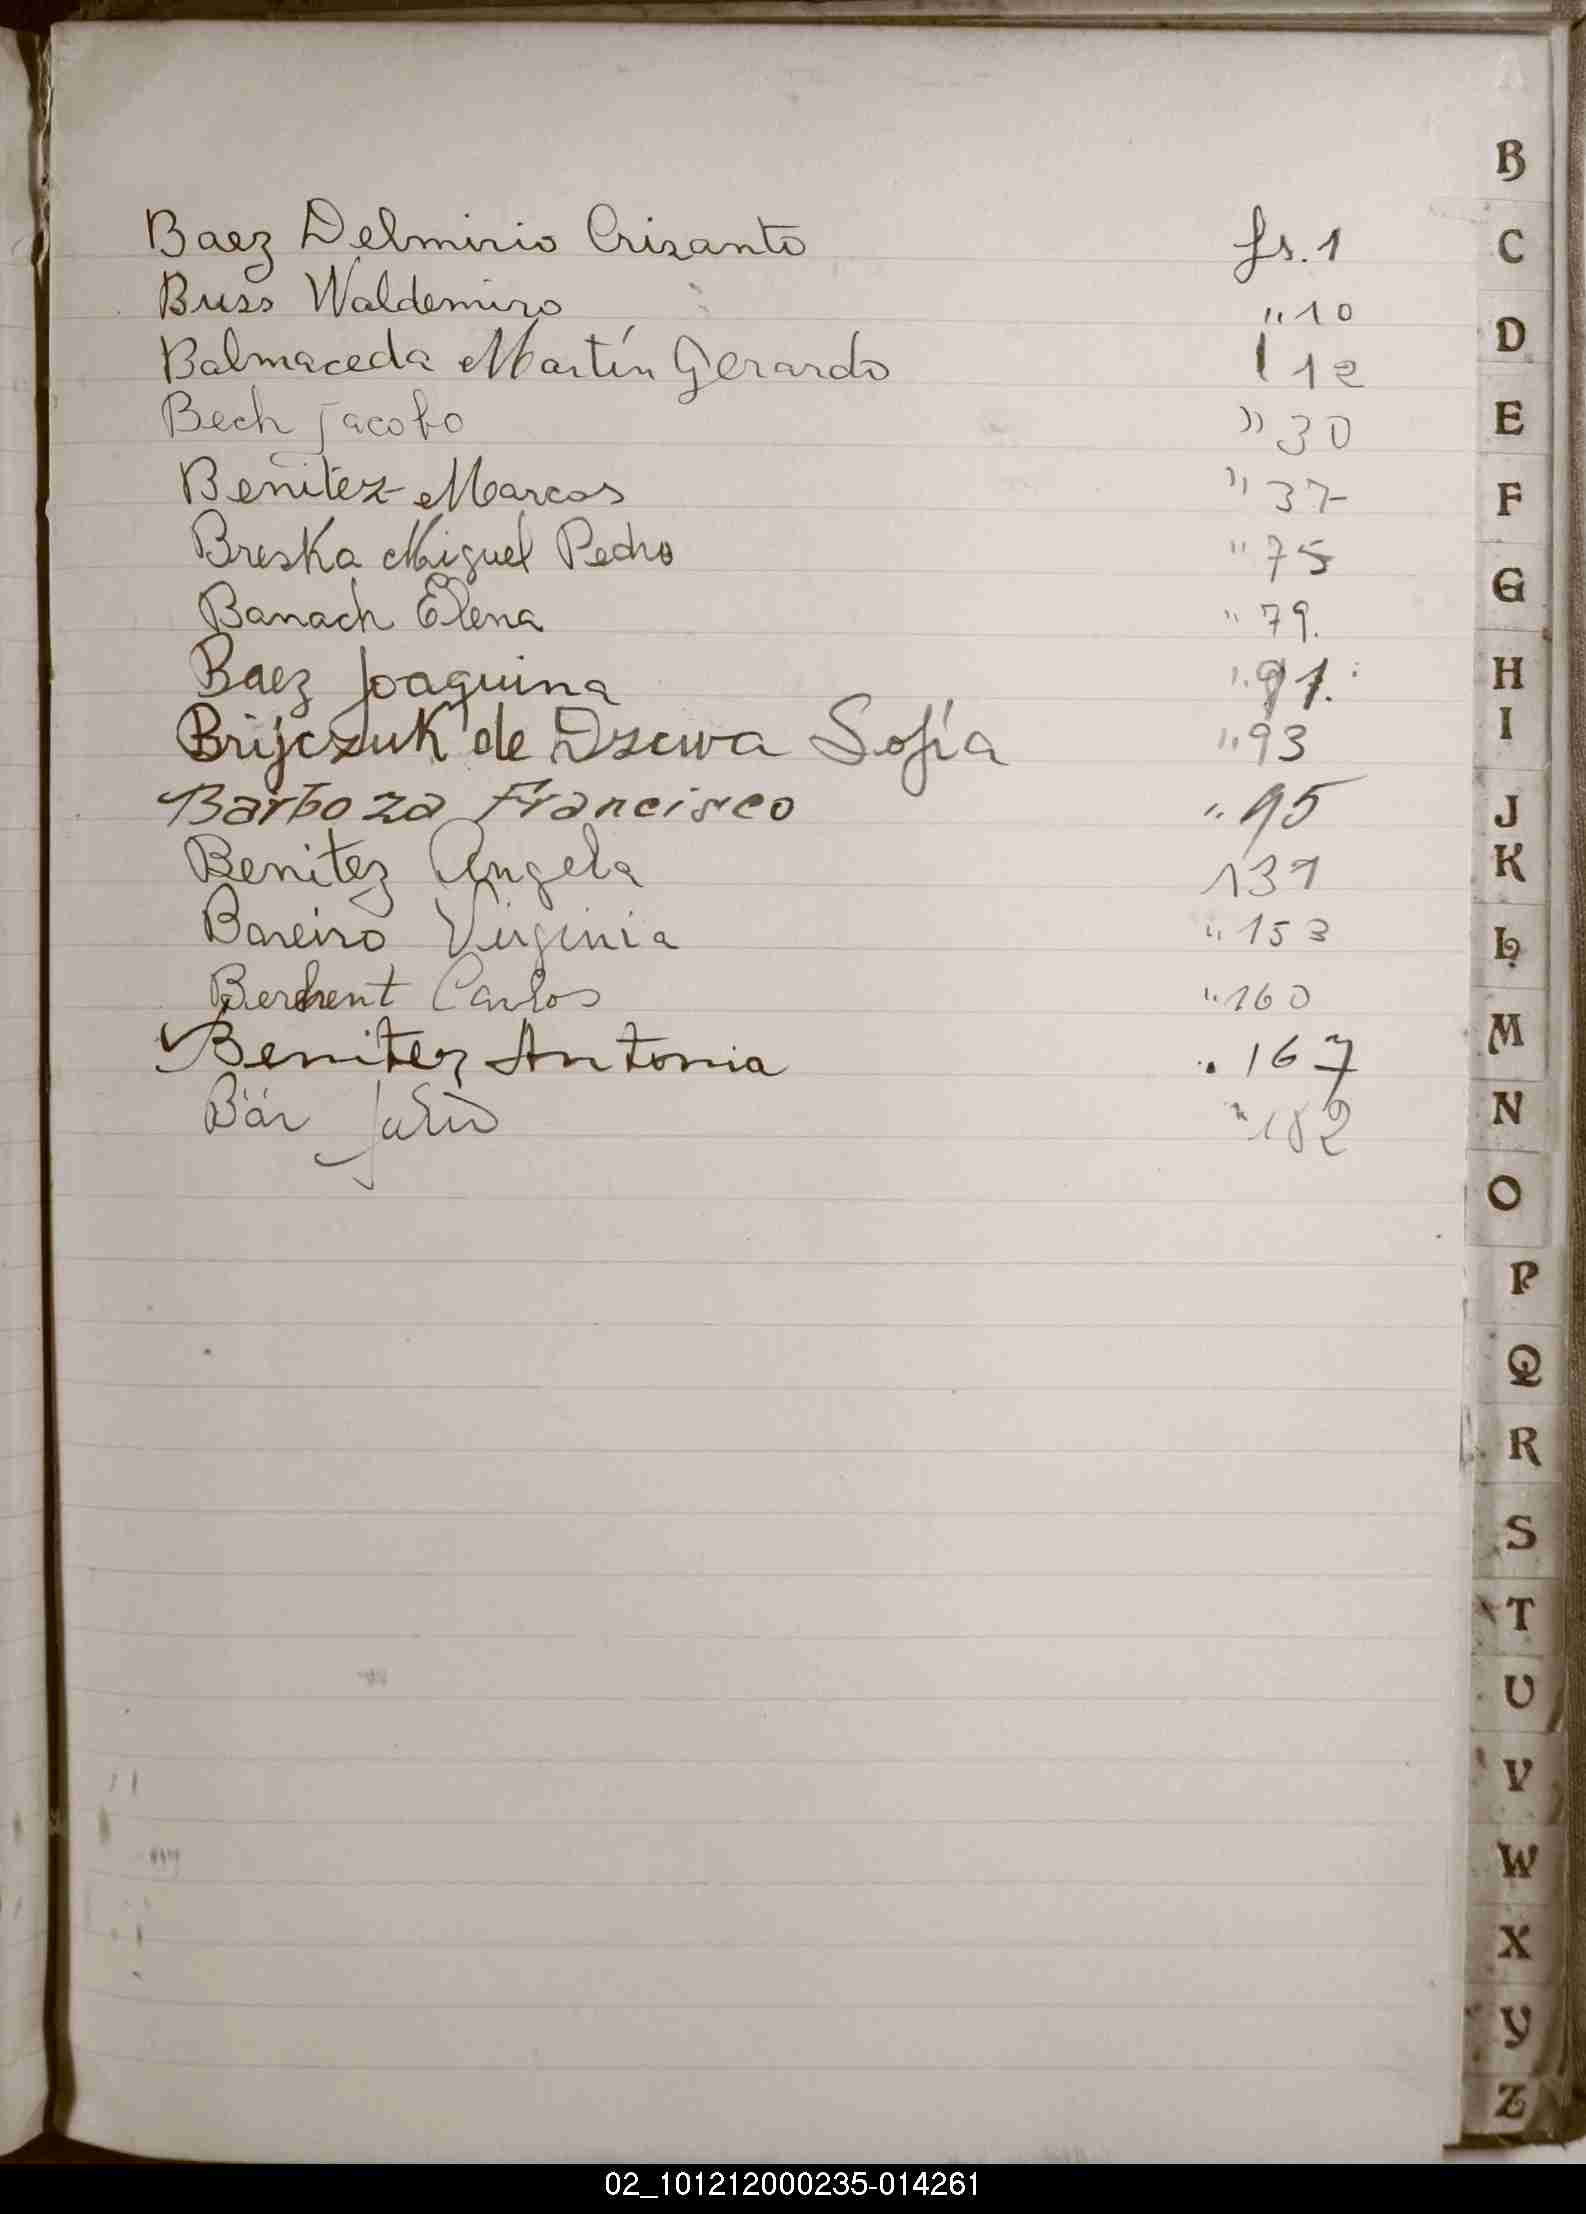 Baez Delmirio Crisanto fs. 1
Buss Waldemiro " 10
Balmaceda Martín Gerardo 12
Bech Jacobo " 30
Benitez Marcos " 37
Breska Miguel Pedro " 75
Banach Elena " 79.
Baez Joaquina " 91.
Brijczuk de Dzewa Sofía " 93
Barboza Francisco " 95
Benitez Angela 131
Bareiro Virginia " 153
Berchent Carlos " 160
Benitez Antonia " 167
Bär Julio " 182
B
C
D
E
F
G
H
I
J
K
L
M
N
O
P
Q
R
S
T
U
V
W
X
Y
Z
02_101212000235-014261